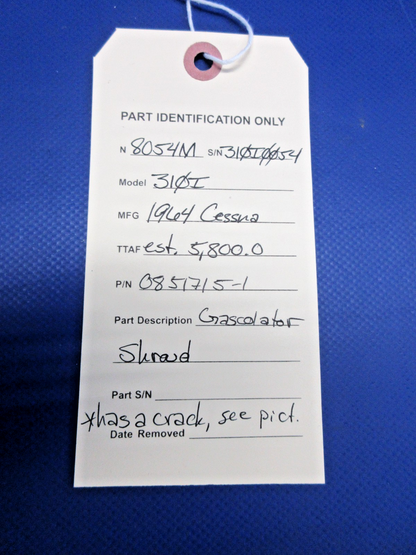 PART IDENTIFICATION ONLY
N 8054M S/N 310I0054
Model 310I
MFG 1964 Cessna
TTAF est. 5,800.0
P/N 0851715-1
Part Description Gascolator
Shroud
Part S/N
*has a crack, see pict.
Date Removed